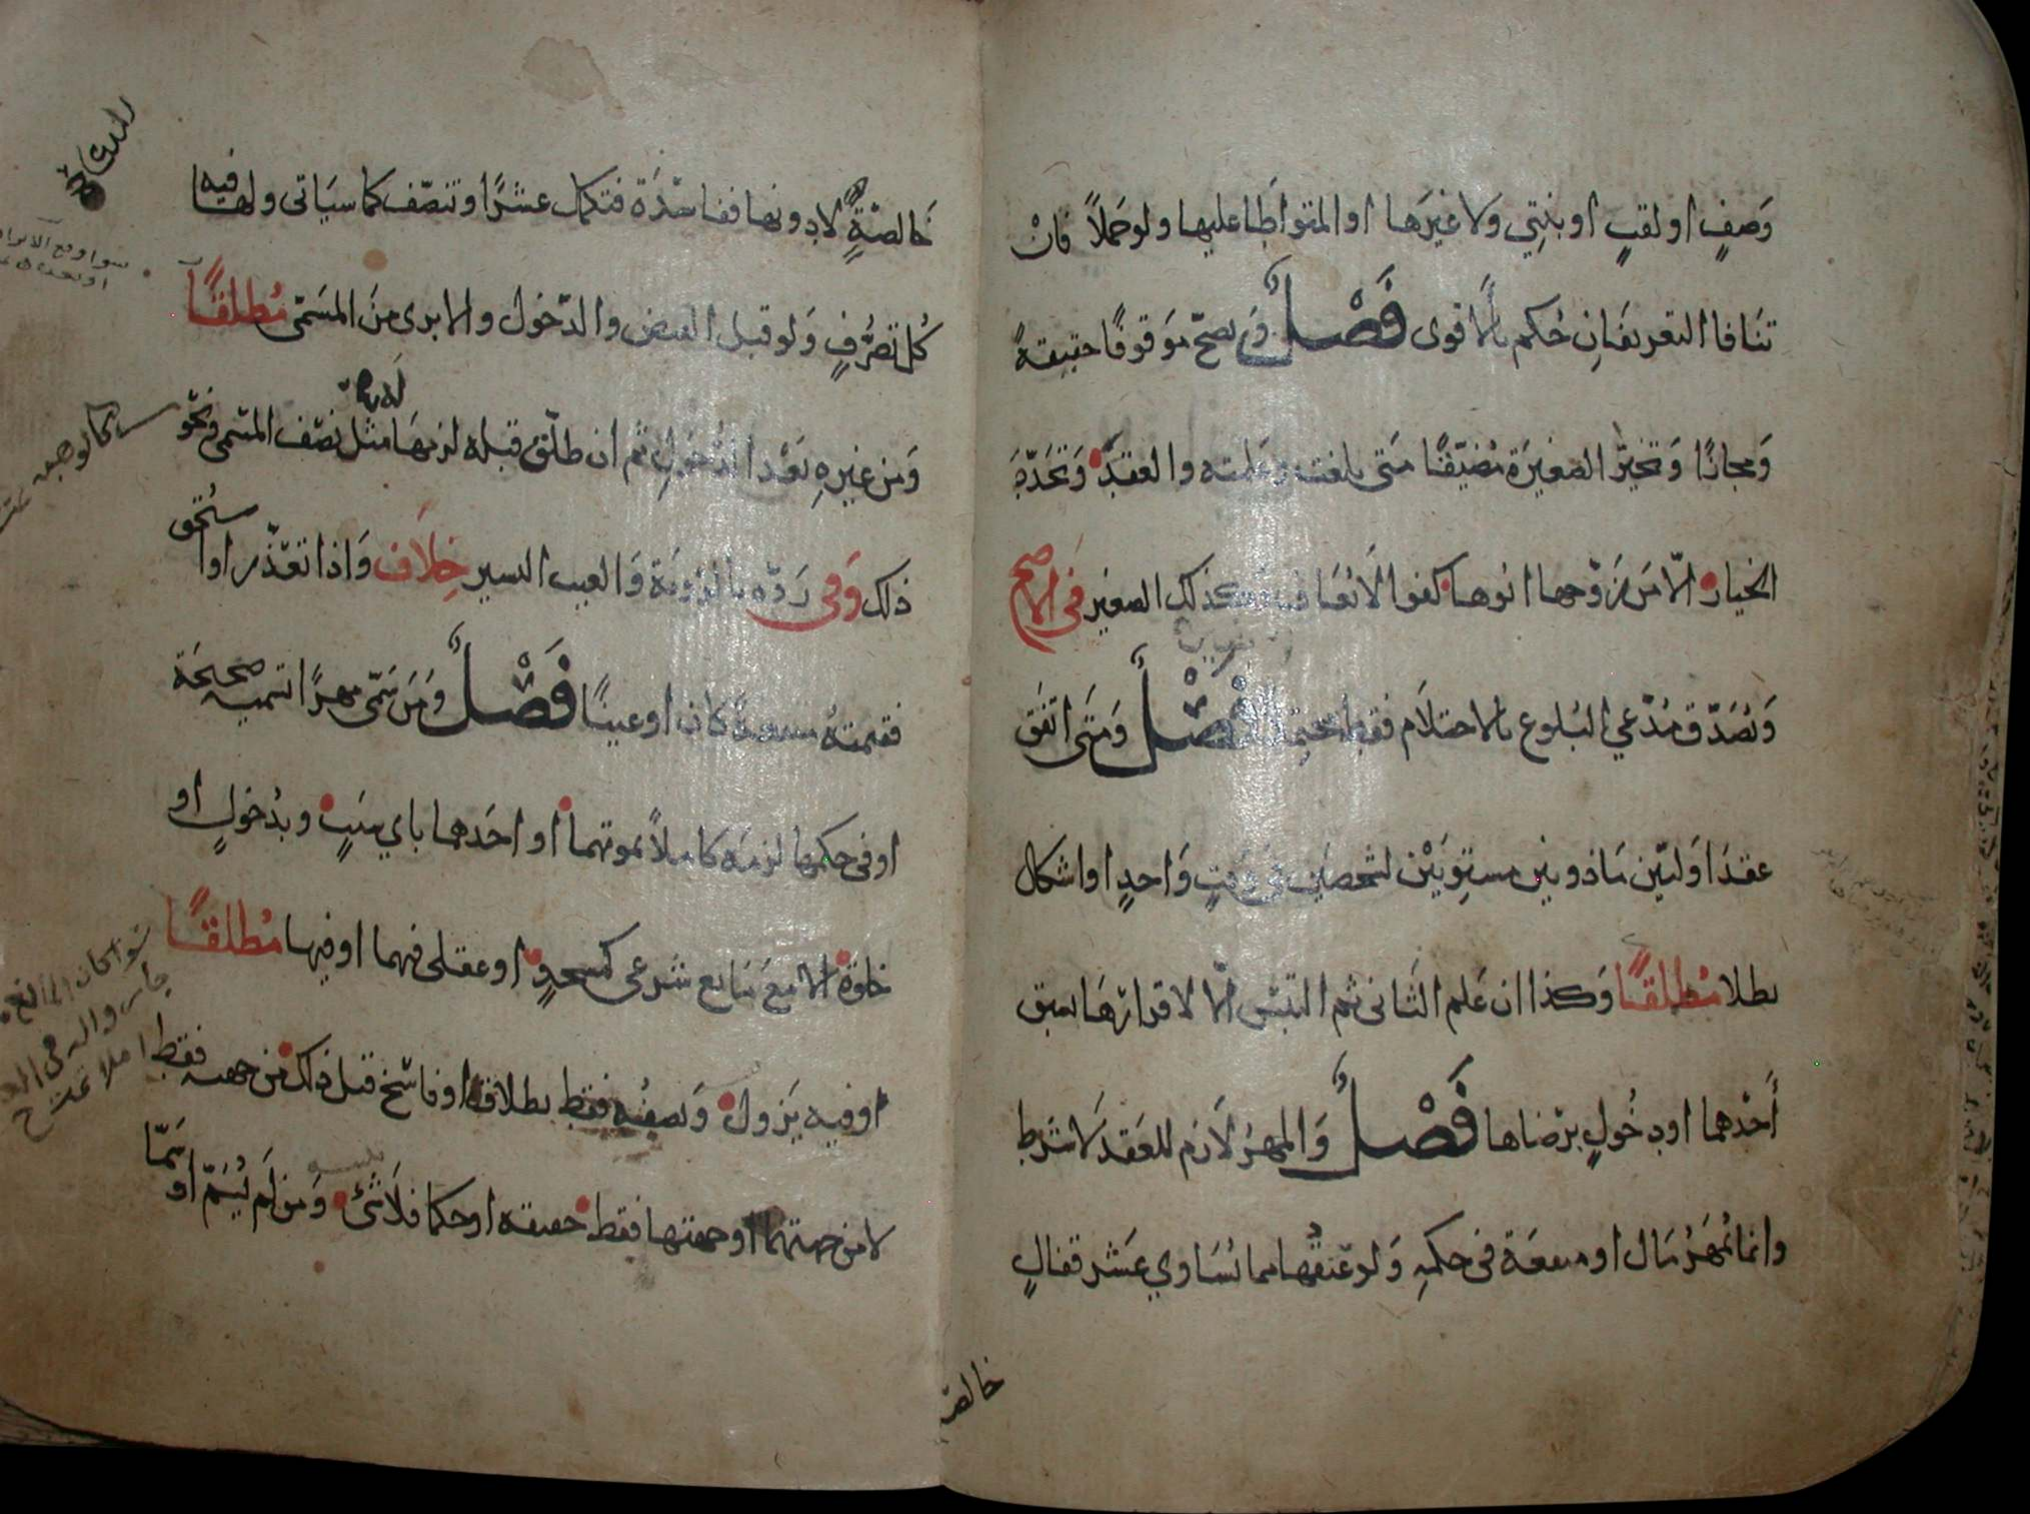 وَصفٍ او لقبٍ او بنتِي ولا غيرَها او المتواطَا عليها ولو حَملاً فان
تنافا التعريفانِ حُكم بالاقوى فَصْلٌ وَيصحّ موقوفًا حقيقةً
وَمجازًا وَتخيّر الصغيرَة مُضيّقًا متى بلغت وعلمته والعقد وَتجدّد
الخيار الّا مَن زوّجها ابوها كفوا لا يُعاف وكذلك الصغير في الاصح
وَيُصَدّق مُدّعي البُلوغ بالاحتلام فقط محتملا فَصْلٌ وَمتَى اتفَق
عقدَا وَليّين مَاذونين مستوِيَيْن لشخصين في وقتٍ وَاحدٍ او اشكل
بطلا مُطلقًا وَكذا ان عَلم الثَاني ثم التبَس الّا لاقرارها بسبق
أَحْدهما او دخُولٍ برضاها فَصْلٌ وَالمهرُ لَازم للعَقد لَا شرط
وانما يُمهَرُ مَال او منفعَة في حكمِه وَلو عتقُها مما يُسَاوي عَشر قفالٍ
خالصة
خَالصَةٍ لا دونها ففاسدَة فتكمل عشرًا وتنصّف كما سيَاتي ولها فيه
كُل تصَرُّفٍ وَلو قبل القبض والدّخول والابرى منَ المسَمّى مُطلقًا
وَمن غيرِهِ بَعْد الدخولِ ثم ان طلّق قبله لزمهَا مثل نصف المسَمى ونحو
ذلك وَفي رَدّه بالرؤيَة وَالعيب اليسير خِلَاف وَاذا تعذّر او استُحق
فقيمتهُ منفعةً كان او عينًا فَصْلٌ وَمَن سَمّى مهرًا تسميه صحيحَة
او في حكمها لزمه كاملاً بموتهما او احَدهما باي سَببٍ وبدُخولٍ او
خلوَة الا معَ مَانع شرعي كمسجدٍ او عقلي فيهما او فيها مُطلقًا
او فيه يَزول وَنصفُه فقط بطلاق او فاسخ قبل ذلك من جهته فقط
لا من جهتهما او جهتها فقط حقيقه او حكما فلَا شَئ وَمن لم يُسَمّ او سَمّا